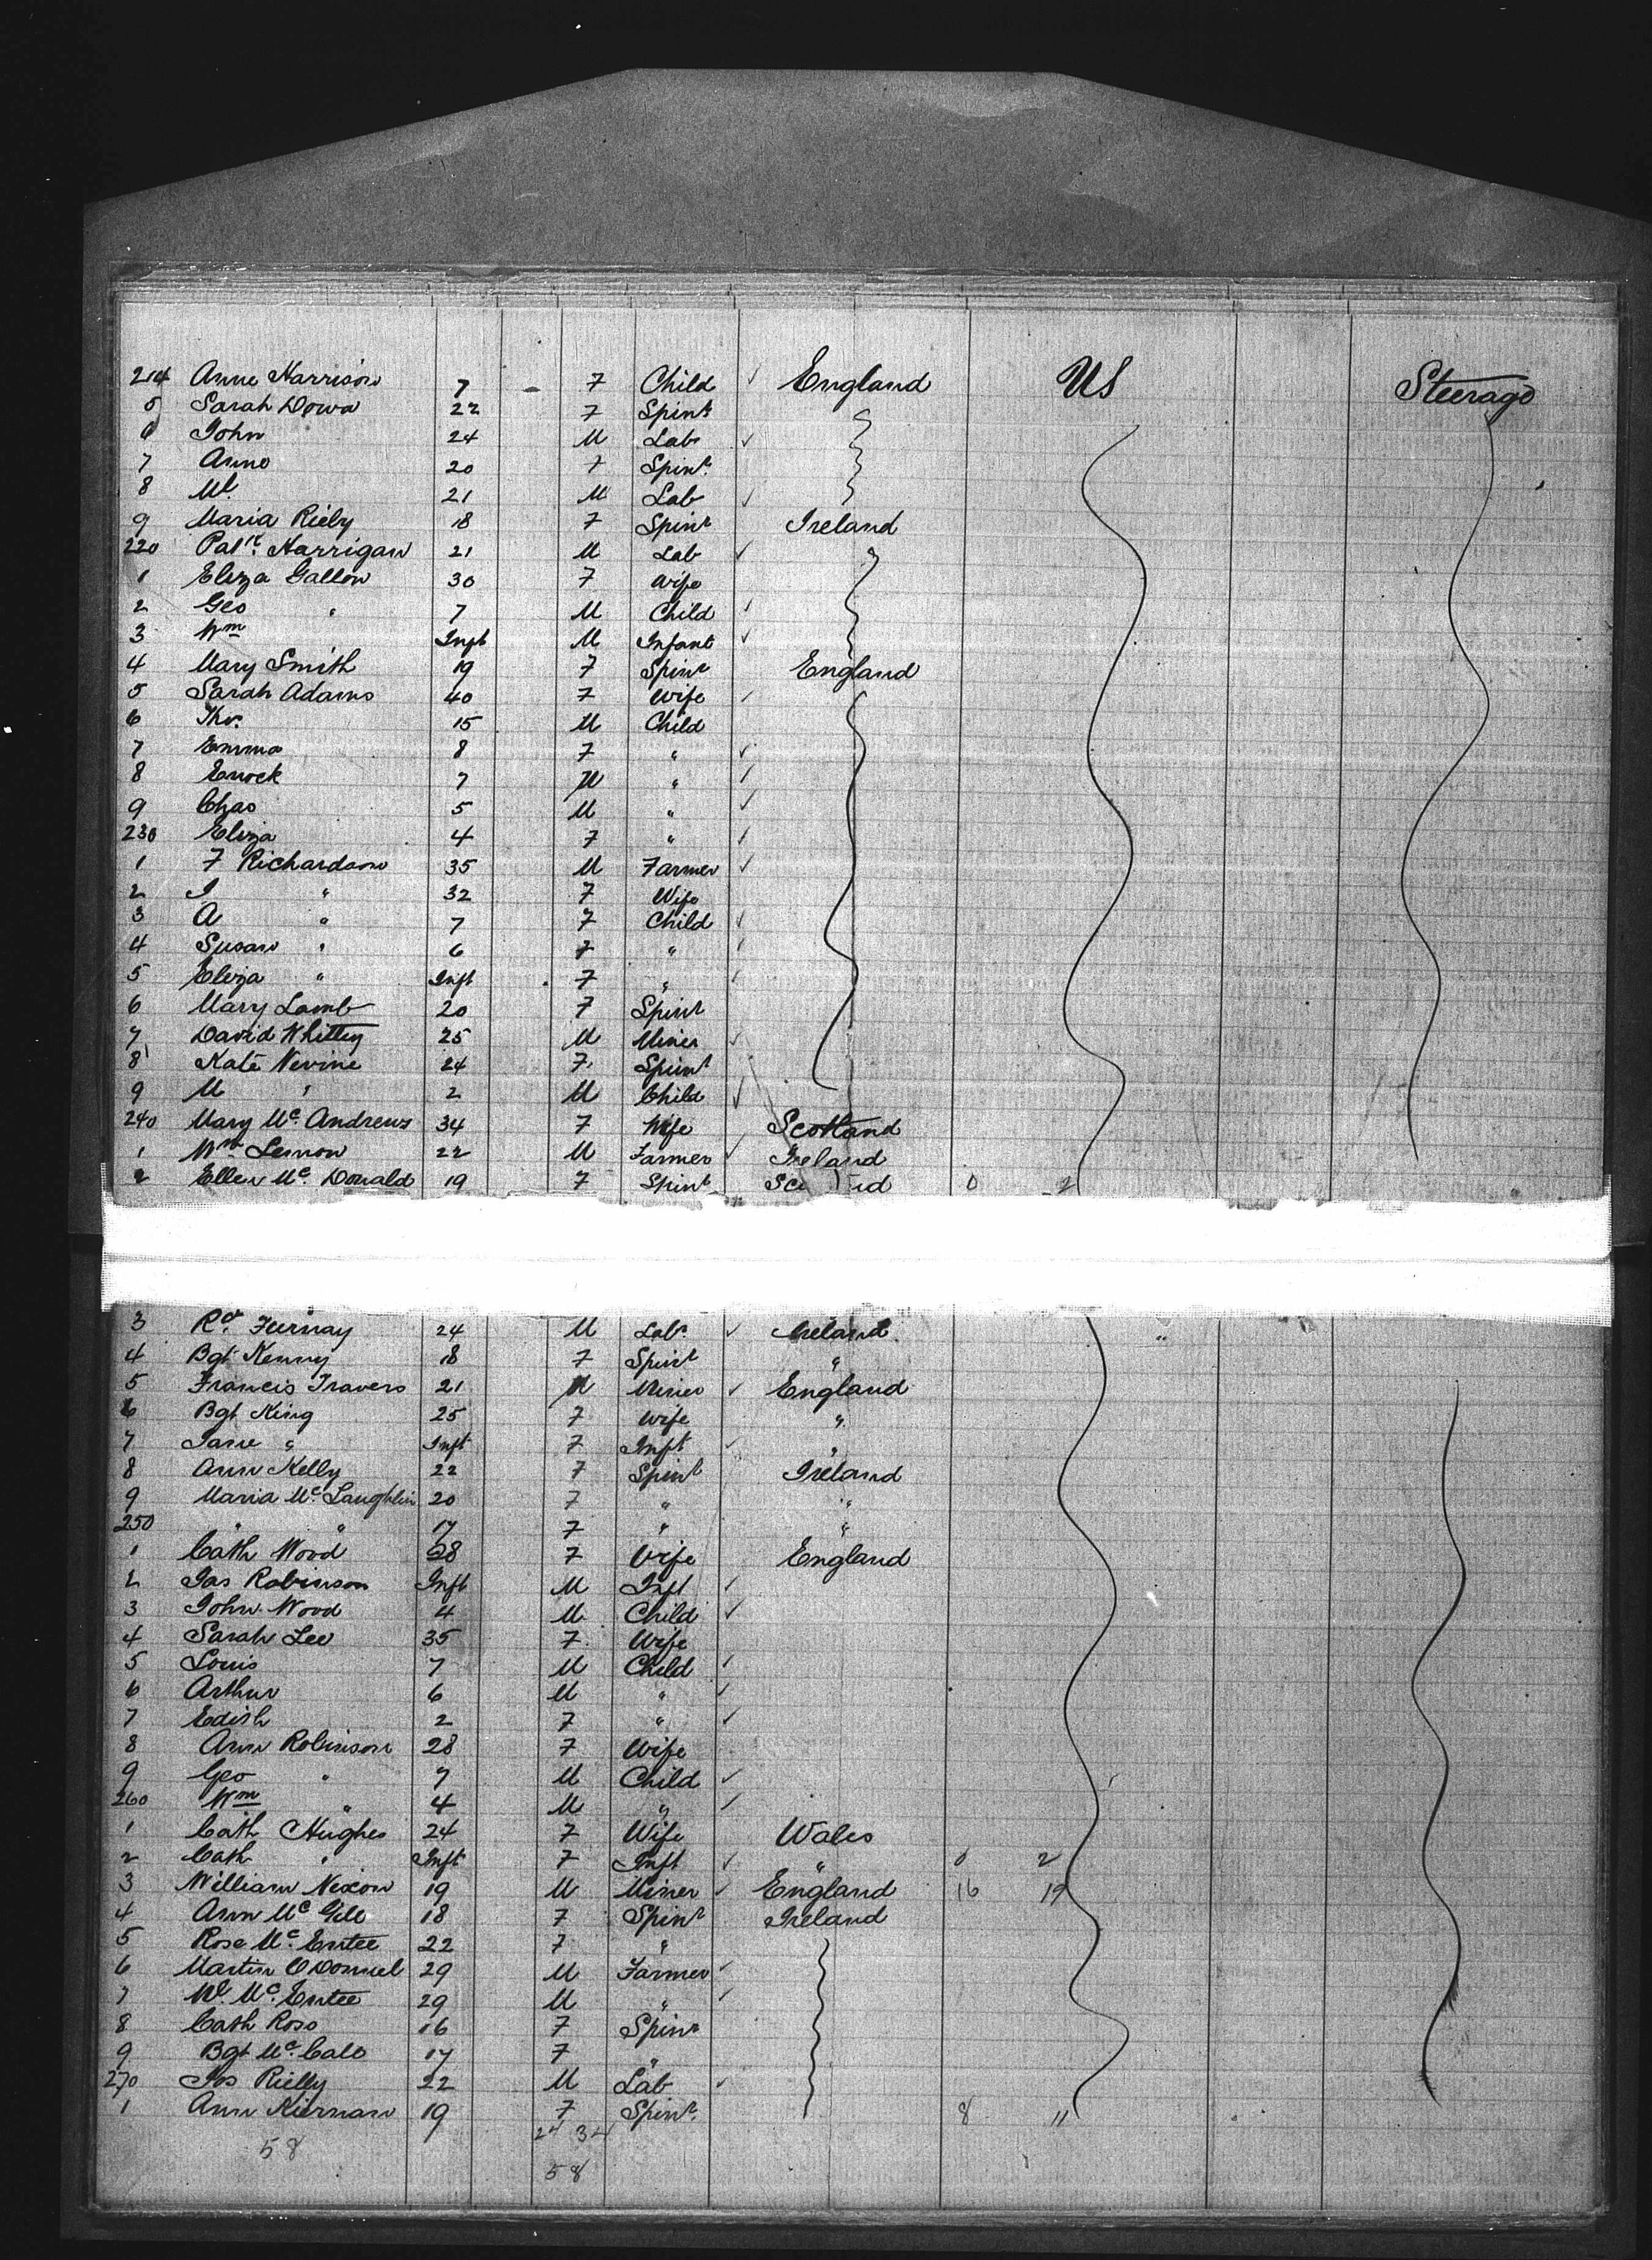 214 Anne Harrison 7 - F Child ✓ England US Steerage
5 Sarah Dowa 22 F Spinr
6 John 24 M Lab ✓
7 Anne 20 F Spinr.
8 Ml 21 M Lab ✓
9 Maria Rieby 18 F Spinr Ireland
220 Patk. Harrigan 21 M Lab ✓
1 Eliza Gallon 30 F Wife
2 Geo " 7 M Child ✓
3 Wm Inft M Infant ✓
4 Mary Smith 19 F Spinr England
5 Sarah Adams 40 F Wife ✓
6 Tho. 15 M Child
7 Emma 8 F " ✓
8 Enock 7 M " ✓
9 Chas 5 M " ✓
230 Eliza 4 F " ✓
1 F Richardson 35 M Farmer ✓
2 J " 32 F Wife
3 A " 7 F Child ✓
4 Susan " 6 F " ✓
5 Eliza " Inft F " ✓
6 Mary Lamb 20 F Spinr
7 David Whittey 25 M Miner ✓
8 Kate Nevine 24 F Spinr
9 M " 2 M Child ✓
240 Mary Mc. Andrews 34 F Wife Scotland
1 Wm Lennon 22 M Farmer ✓ Ireland
2 Ellen Mc. Donald 19 F Spinr Sc nd 0 2
3 Rd. Furnay 24 M Labr ✓ Ireland "
4 Bgt Kenny 18 F Spinr "
5 Francis Travers 21 M Miner ✓ England
6 Bgt King 25 F Wife "
7 Jane " Inft F Inft ✓ "
8 Ann Kelly 22 F Spinr Ireland
9 Maria Mc. Laughlin 20 F " "
250 " " 17 F " "
1 Cath Wood 28 F Wife England
2 Jas Robinson Inft M Inft ✓
3 John Wood 4 M Child ✓
4 Sarah Lee 35 F Wife
5 Louis 7 M Child ✓
6 Arthur 6 M " ✓
7 Edith 2 F " ✓
8 Ann Robinson 28 F Wife
9 Geo " 7 M Child ✓
260 Wm " 4 M " ✓
1 Cath Hughes 24 F Wife Wales
2 Cath " Inft F Inft ✓ " 0 2
3 William Nixon 19 M Miner ✓ England 16 19
4 Ann Mc Gill 18 F Spinr Ireland
5 Rose Mc. Entee 22 F "
6 Martin O Donnel 29 M Farmer ✓
7 Ml Mc. Entee 29 M " ✓
8 Cath Ross 16 F Spinr
9 Bgt Mc. Cale 17 F "
270 Jos Rielly 22 M Lab ✓
1 Ann Kiernan 19 F Spinr. 8 11
24 34
58 58